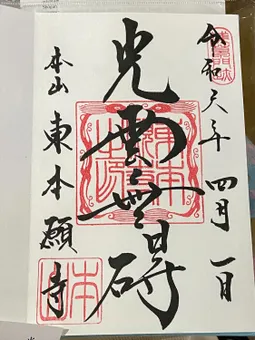 令和六年四月一日
光雲無碍
本山東本願寺